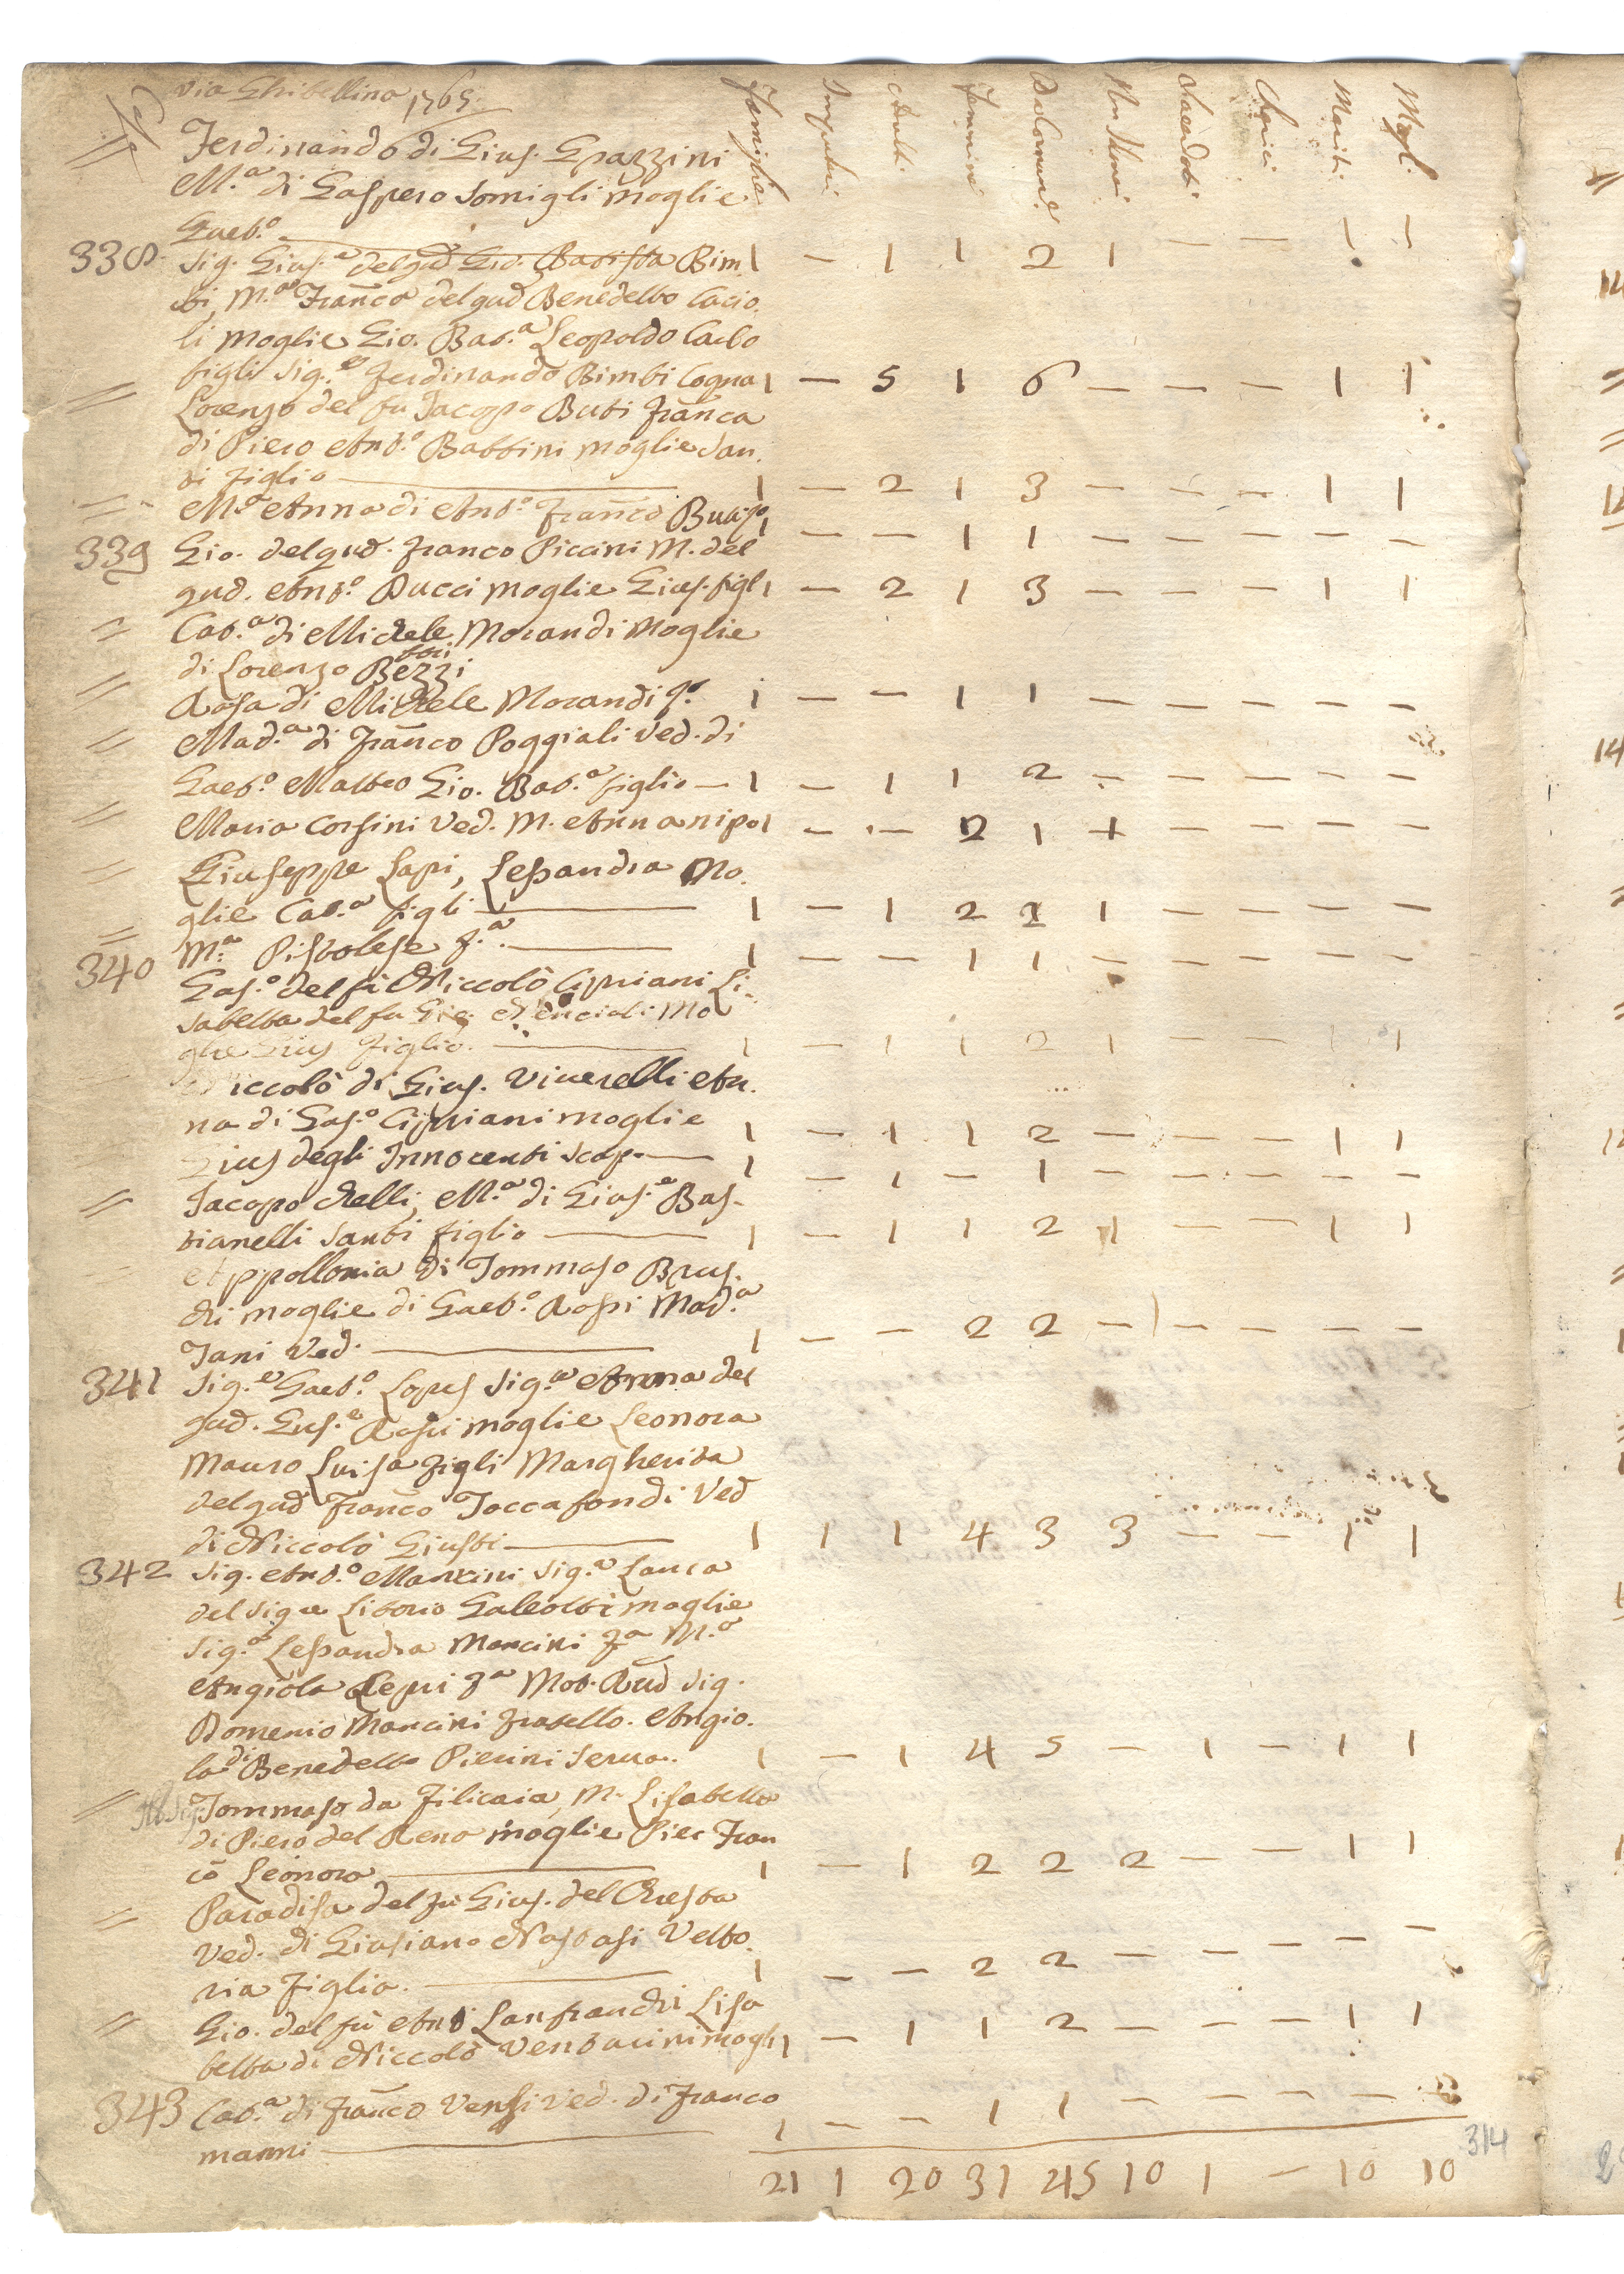 Via Ghibellina 1765
Case Famiglie Impuberi Adulti Femmine Da Comun.e Non Com.i Sacerdoti Cherici Mariti Mogli
= Ferdinando di Gius. Grazzini
M.a di Gaspero Somigli moglie
Gaet.o — 1 — 1 1 2 1 — — 1 1
338 Sig. Gius.e del qud Gio. Batista Bim
bi, M.a Franca del qud Benedetto Cacio.
li moglie Gio. Bat.a Leopoldo Carlo
figli Sig.e Ferdinando Bimbi Cogna 1 — 5 1 6 — — — 1 1
= Lorenzo del fu Jacopo Buti Franca
di Piero Ant.o Battini moglie San.
ti figlio — 1 — 2 1 3 — — — 1 1
= M.a Anna di Ant.o Franco 1 — — 1 1 — — — — —
339 Gio. del qud. Franco Piccini M. del
qud. Ant.o Ducci moglie Gius. figl 1 — 2 1 3 — — — 1 1
= Cat.a di Michele Morandi Moglie
di Lorenzo
= Rosa di Michele Morandi 1 — — 1 1 — — — — —
= Mad.a di Franco Poggiali Ved. di
Gaet.o Matteo Gio. Bat.a figlio — 1 — 1 1 2 — — — — —
= Maria Corsini Ved. M. Anna nipo 1 — — 2 1 + — — — —
= Giuseppe Lapi, Lessandra Mo.
glie Cat.a figli — 1 — 1 2 2 1 — — — —
= M.a Pistolese F.a — 1 — — 1 1 — — — — —
340 Gas.o del fù Niccolò Cipriani Li.
sabetta del fu Gio. Mencioli Mo
glie Gius figlio. — 1 — 1 1 2 1 — — 1 1
Niccolò di Gius. Vinerelli An.
na di Gas.o Cipriani moglie 1 — 1 1 2 — — — 1 1
Gius degli Innocenti Scap. — 1 — 1 — 1 — — — — —
= Jacopo Chelli, M.a di Gius.e Bas.
tianelli Santi figlio — 1 — 1 1 2 1 — — 1 1
Appollonia di Tommaso Brus.
chi moglie di Gaet.o Rossi Mad.a
Tani Ved. — 1 — — 2 2 — — — — —
341 Sig.e Gaet.o Lopes Sig.a Anna del
qud. Gius.e Rossi moglie Leonora
Mauro Luisa figli Margherita
del qud Franco Toccafondi Ved
di Niccolò Giusti — 1 1 1 4 3 3 — — 1 1
342 Sig. Ant.o Mancini Sig.a Laura
del Sig.re Litorio Galeotti moglie
Sig.a Lessandra Mancini F.a M.a
Angiola Lepri F.a Mol. Rud Sig.
Domenio Mancini fratello. Angio.
la di Benedetto Pierini Serva. 1 — 1 4 5 — 1 — 1 1
= Ill. Sig. Tommaso da Filicaia, M. Lisabetta
di Piero del Reno moglie Pier Fran
co Leonora — 1 — 1 2 2 2 — — 1 1
= Paradisa del fù Gius. del Chresta
Ved. di Giusiano Nastasi Vetto.
ria figlia. — 1 — — 2 2 — — — — —
= Gio. del fù Ant Lanfranchi Lisa
betta di Niccolò Venturini mogl 1 — 1 1 2 — — — 1 1
343 Cat.a di Franco Vensi Ved. di Franco
manni — 1 — — 1 1 — — — — —
21 1 20 31 45 10 1 — 10 10
314